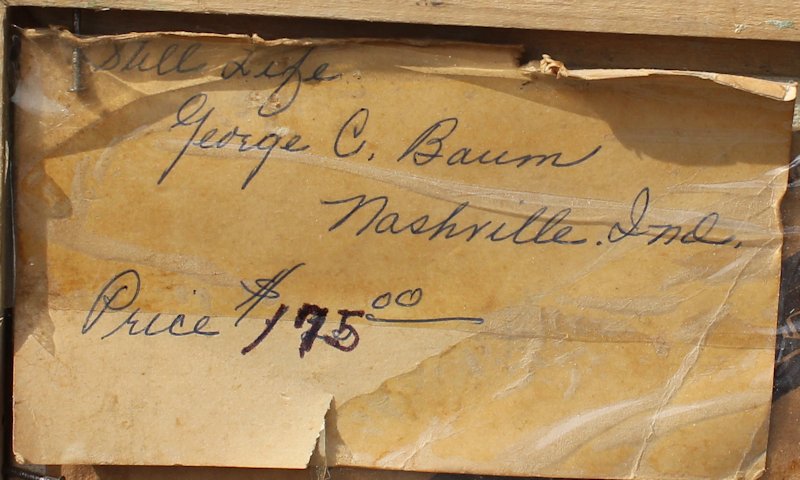 Still Life
George C. Baum
Nashville. Ind.
Price $175 00